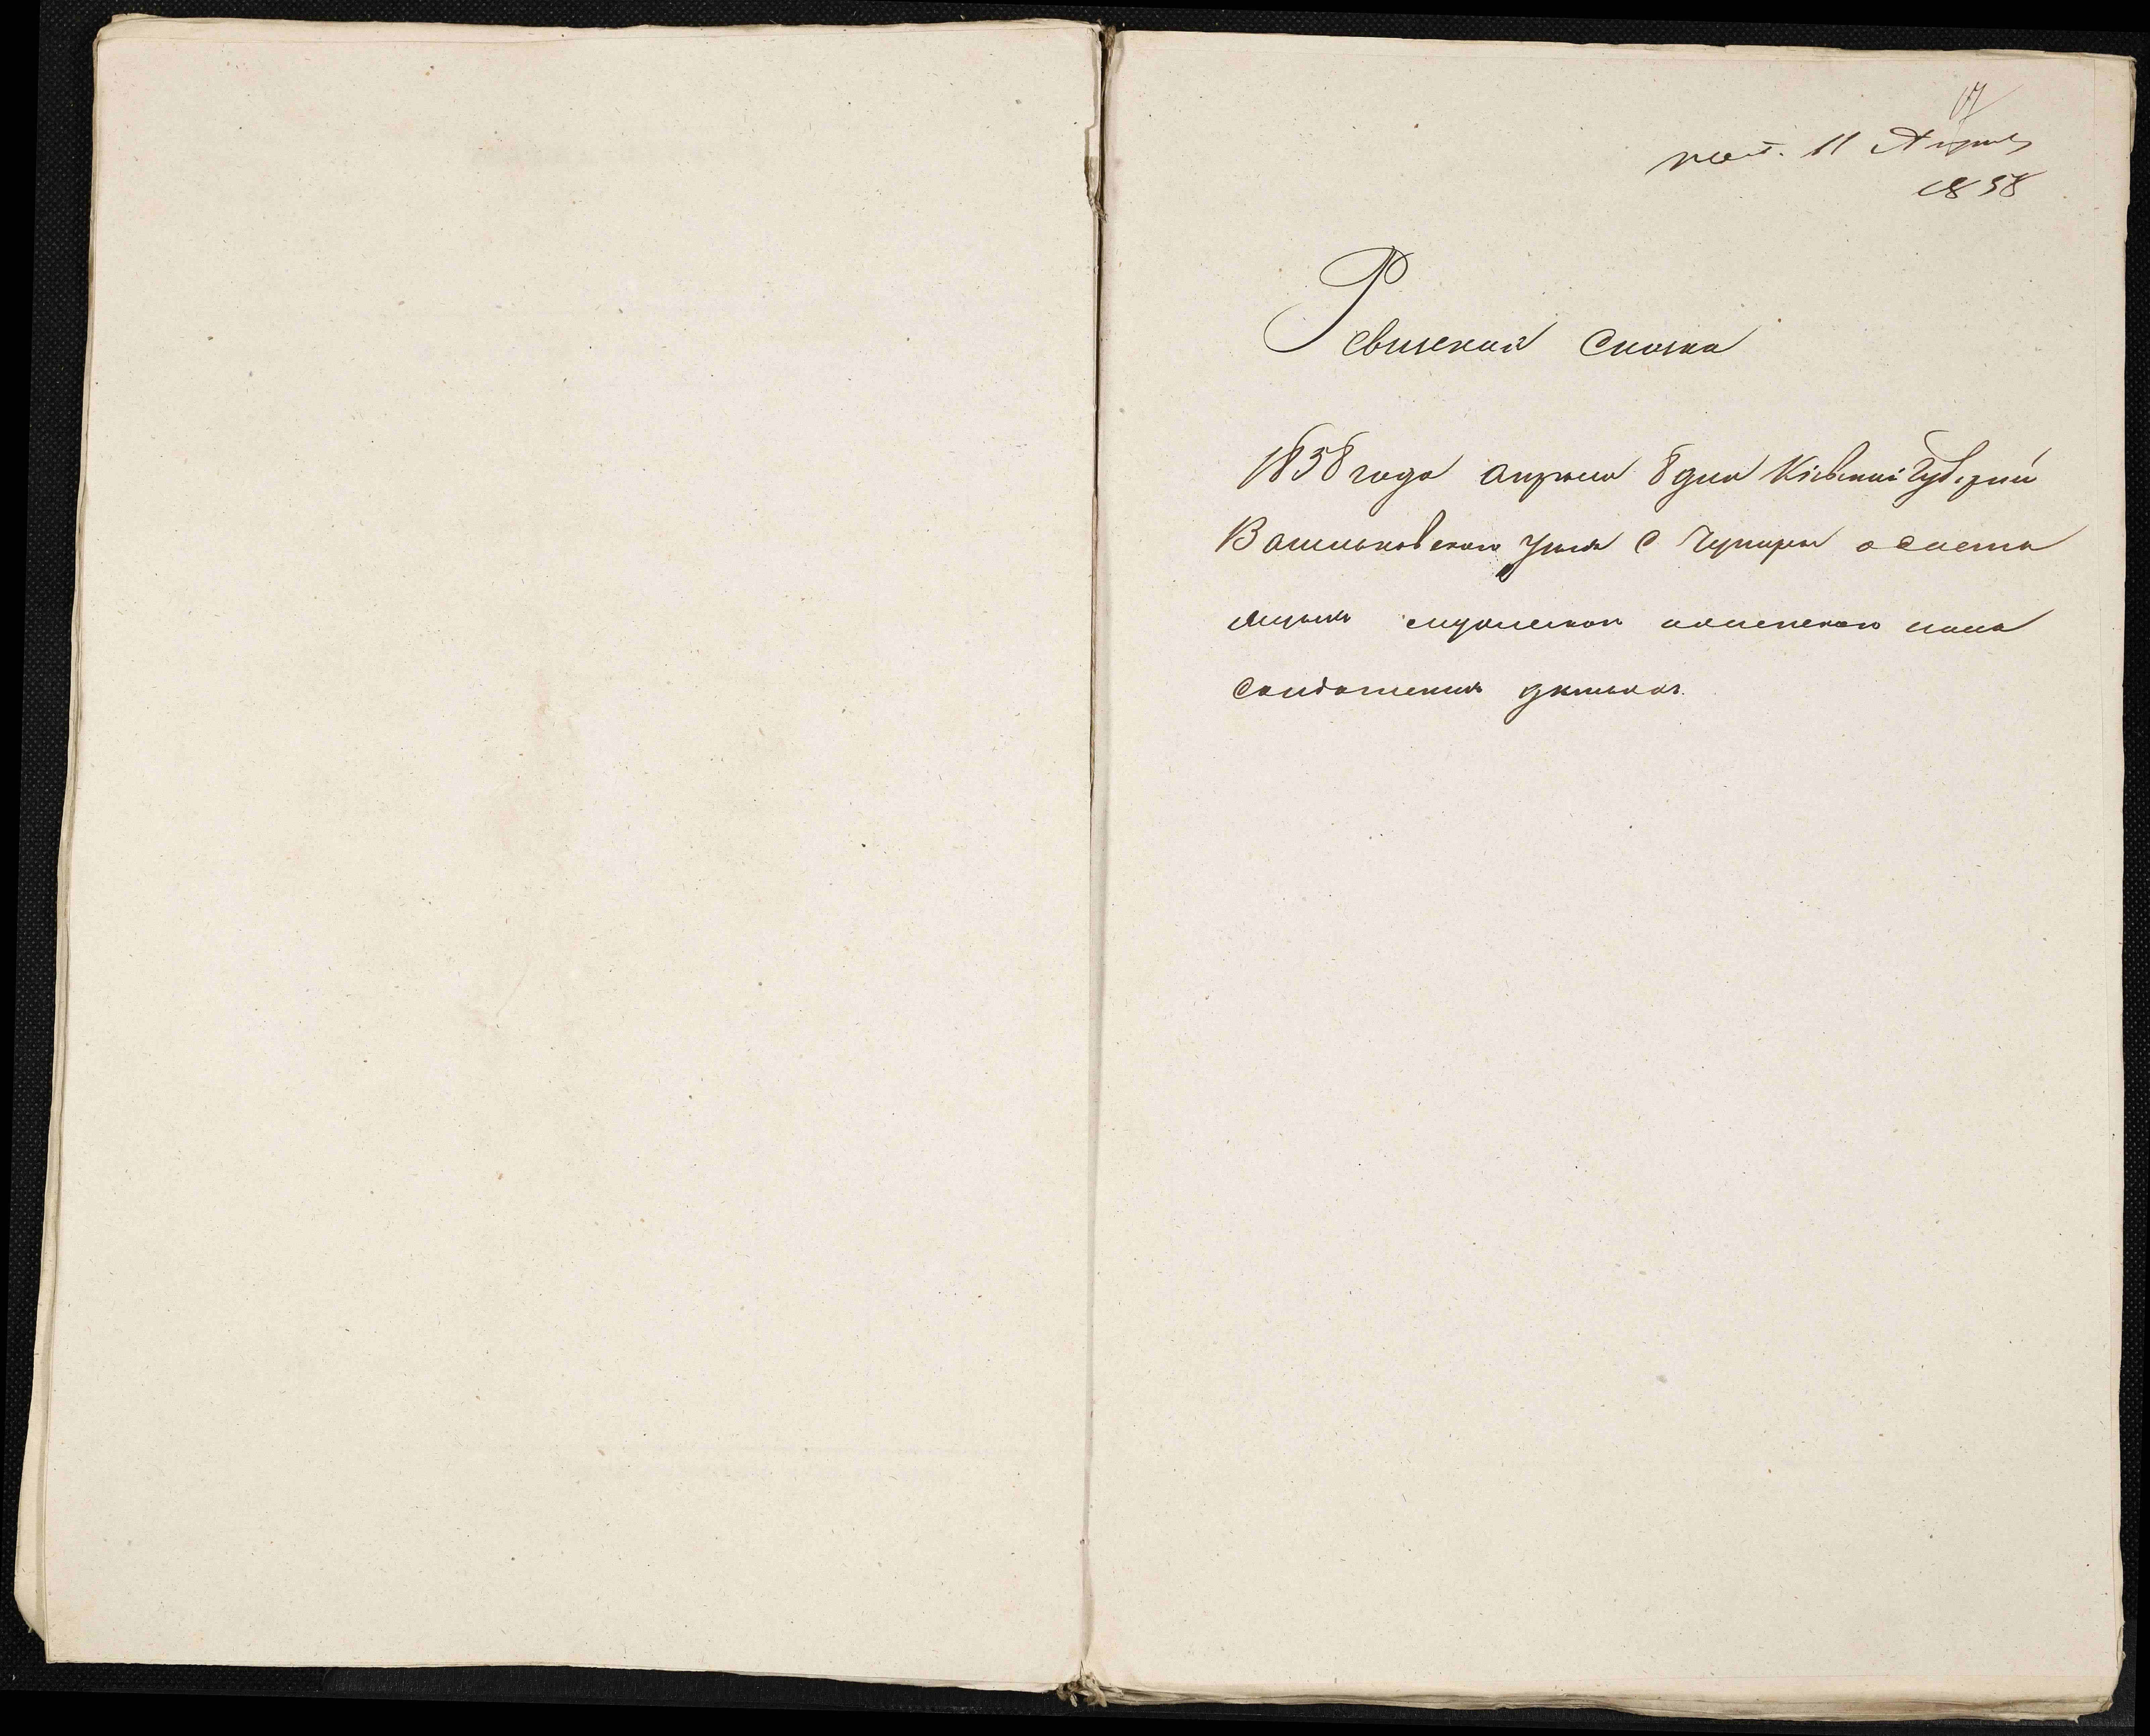 67
пол. 11 Апреля
1858
Ревизская Сказка
1858 года апреля 8 дня Кіевской Губерніи
Васильковского Уезда С. Чупыры о состо
ящихъ мужеского и женского пола
Солдатскихъ детяхъ.